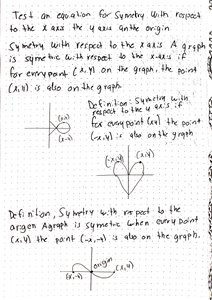 Test an equation for Symetry with respect
to the x axis the y axis an the origin
Symetry with respect to the x axis A graph
is symetric with respect to the x-axis if
for every point (x,y) on the graph, the point
(x,y) is also on the graph.
Definition: Symetry with
respect to the y axis if
for every point (x,y) the point
(-x,y) is also on the graph
(x,y)
(x,-y)
(-x,y) (x,y)
Definition, Symetry with respect to the
origen A graph is symetric when every point
(x,y) the point (-x,-y) is also on the graph.
origin
(x,y)